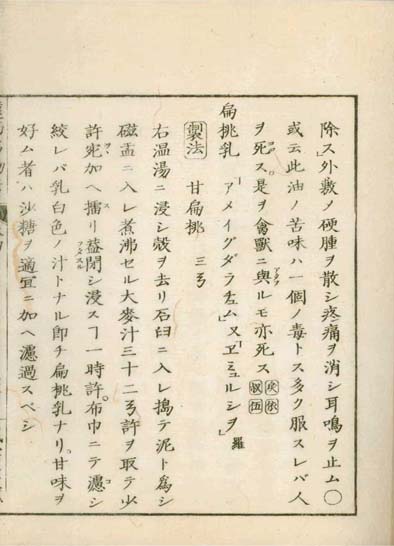 除ス」外敷ノ硬腫ヲ散シ疼痛ヲ消シ耳鳴ヲ止ム〇
或云此油ノ苦味ハ一個ノ毒トス多ク服スレバ人
ヲ死ス是ヲ禽獣ニ與ルモ亦死ス
扁桃乳 「アメイグダラチュム」又「ヱミュルシヲ」羅
製法 甘扁桃 三ゟ
右温湯ニ浸シ殻ヲ去リ石臼ニ入レ搗テ泥ト爲シ
磁盂ニ入レ煮沸セル大麥汁三十二ゟ許ヲ取テ少
許宛加ヘ擂リ蓋閉シ浸スヿ一時許布巾ニテ濾シ
絞レバ乳白色ノ汁トナル即チ扁桃乳ナリ甘味ヲ
好ム者ハ沙糖ヲ適宜ニ加ヘ濾過スベシ